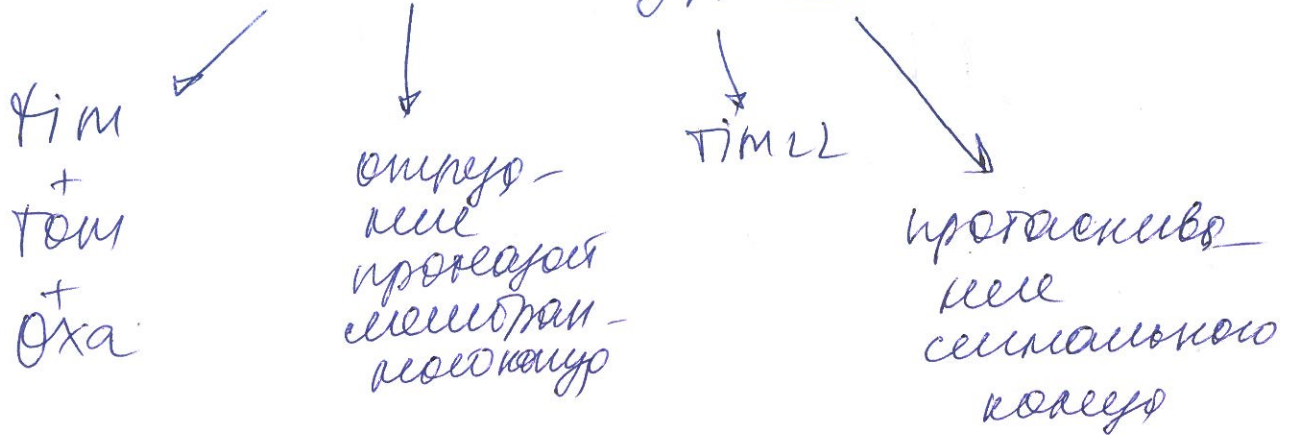 Tim
+
Tom
+
Oxa
отрезание
протеазой
мембран-
ного конца
Tim22
протаскива-
ние
сигнального
конца